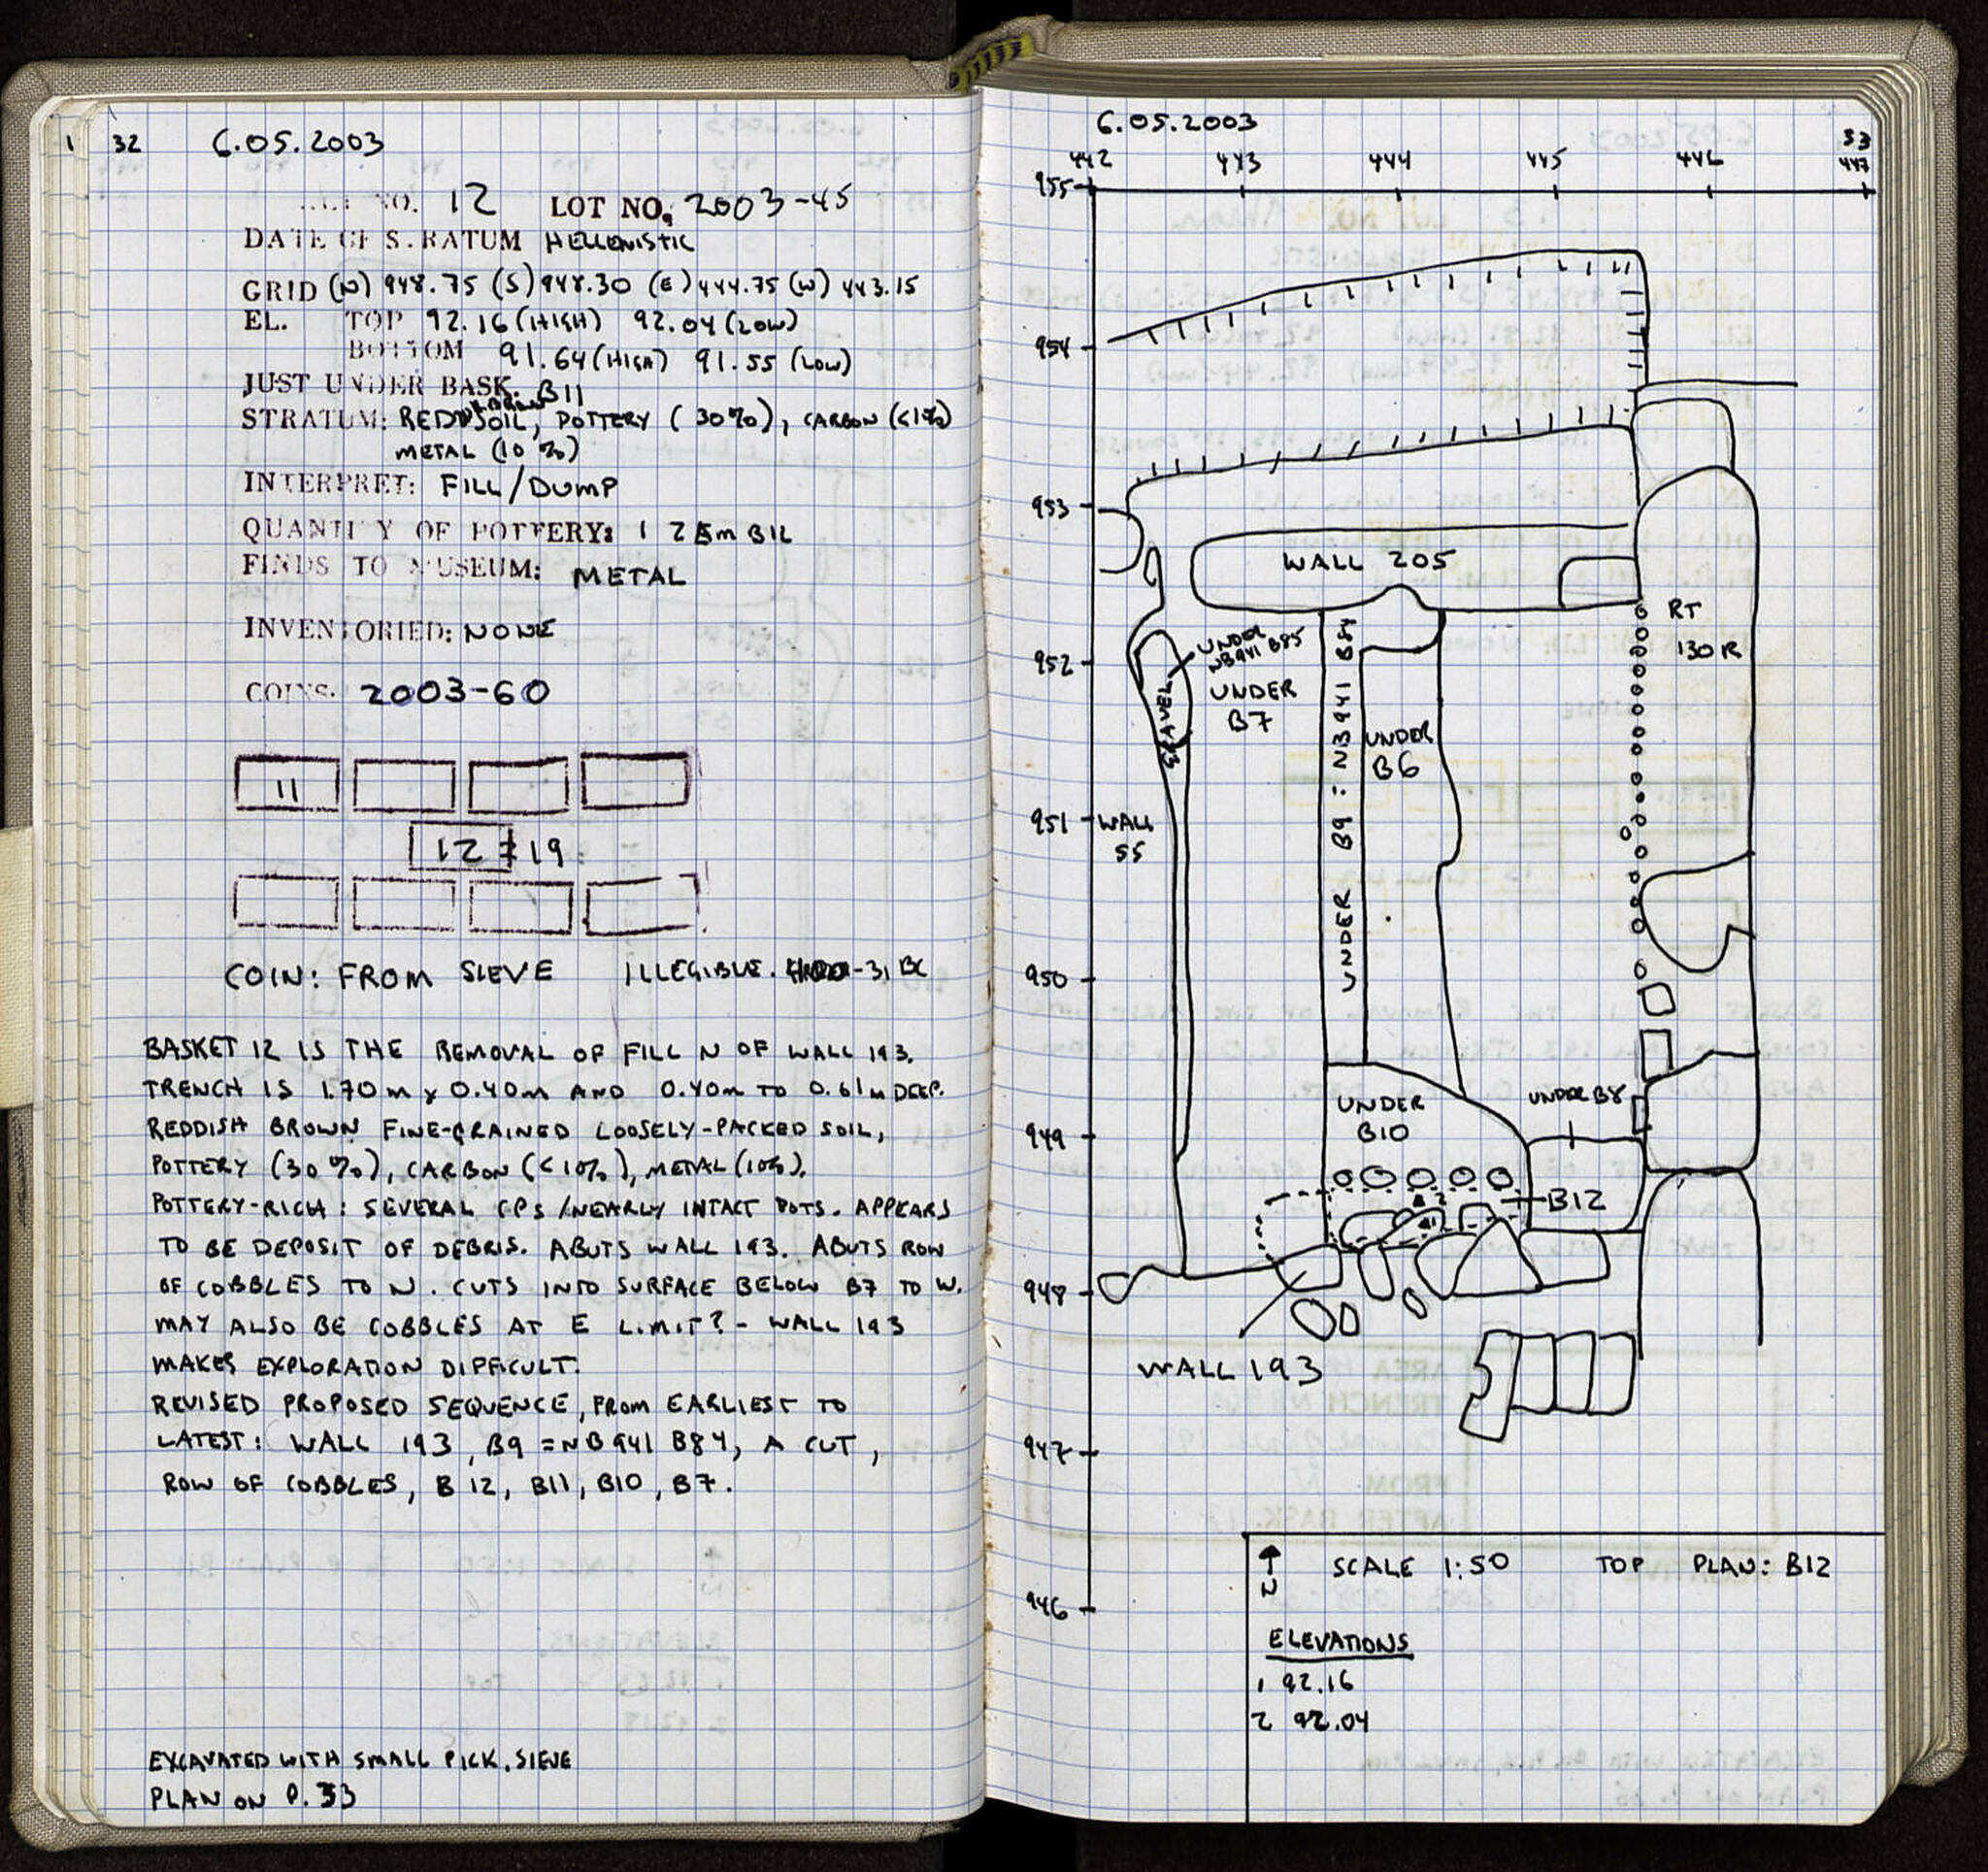 1 32 6.05.2003
NO. 12 LOT NO. 2003-45
DATE OF STRATUM HELLENISTIC
GRID (N) 948.75 (S) 948.30 (E) 444.75 (W) 443.15
EL. TOP 92.16 (HIGH) 92.04 (LOW)
BOTTOM 91.64 (HIGH) 91.55 (LOW)
JUST UNDER BASK. B11
STRATUM: REDDISH BROWN SOIL, POTTERY (30%), CARBON (<1%)
METAL (10%)
INTERPRET: FILL/DUMP
QUANTITY OF POTTERY: 1
FINDS TO MUSEUM: METAL
INVENTORIED: NONE
COINS: 2003-60
11
12 = 19
COIN: FROM SIEVE ILLEGIBLE. -31 BC
BASKET 12 IS THE REMOVAL OF FILL N OF WALL 193.
TRENCH IS 1.70m x 0.40m AND 0.40m TO 0.61m DEEP.
REDDISH BROWN FINE-GRAINED LOOSELY-PACKED SOIL,
POTTERY (30%), CARBON (<10%), METAL (10%).
POTTERY-RICH: SEVERAL CPS/NEARLY INTACT POTS. APPEARS
TO BE DEPOSIT OF DEBRIS. ABUTS WALL 193. ABUTS ROW
OF COBBLES TO N. CUTS INTO SURFACE BELOW B7 TO W.
MAY ALSO BE COBBLES AT E LIMIT? - WALL 193
MAKES EXPLORATION DIFFICULT.
REVISED PROPOSED SEQUENCE, FROM EARLIEST TO
LATEST: WALL 193, B9 = NB941 B84, A CUT,
ROW OF COBBLES, B12, B11, B10, B7.
EXCAVATED WITH SMALL PICK, SIEVE
PLAN ON P. 33
6.05.2003
33
442 443 444 445 446 447
955
954
953
WALL 205
RT
130 R
952
UNDER
NB941 B85
UNDER
B7
GRAVEL
UNDER B9 = NB941 B84
UNDER
B6
951
WALL
55
950
UNDER
B10
UNDER B8
949
B12
2
1
948
WALL 193
947
946
N
SCALE 1:50 TOP PLAN: B12
ELEVATIONS
1 92.16
2 92.04